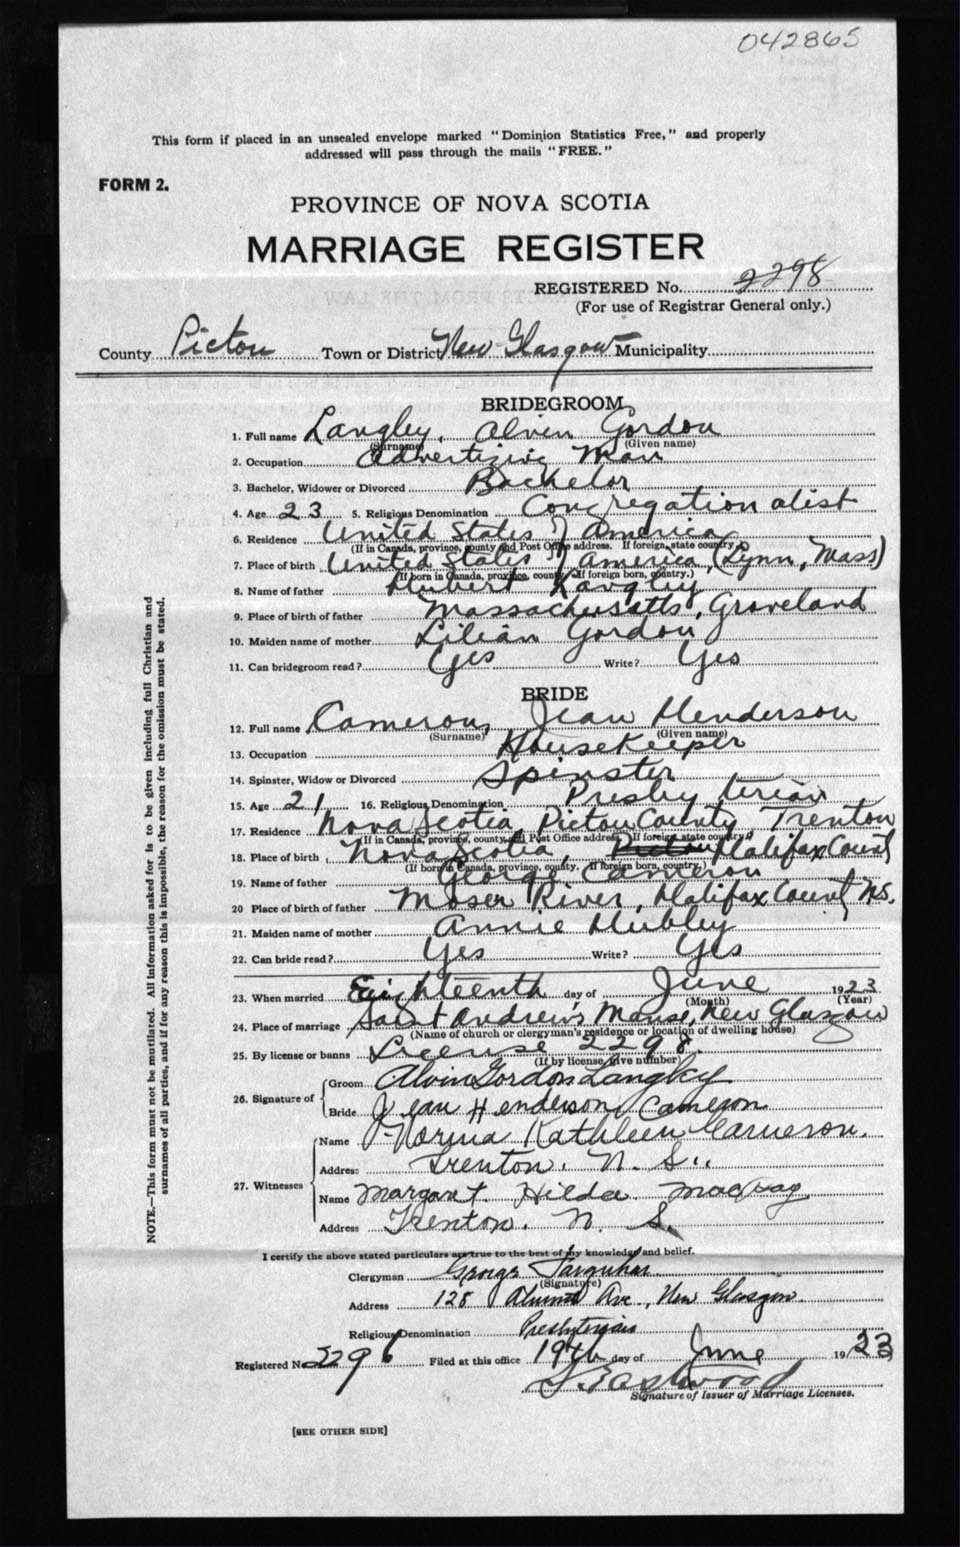 042865
This form if placed in an unsealed envelope marked "Dominion Statistics Free," and properly
addressed will pass through the mails "FREE."
FORM 2.
PROVINCE OF NOVA SCOTIA
MARRIAGE REGISTER
REGISTERED No. 2298
(For use of Registrar General only.)
County Pictou Town or District New Glasgow Municipality
BRIDEGROOM
1. Full name Langley, Alvin Gordon
(Surname) (Given name)
2. Occupation Advertizing Man
3. Bachelor, Widower or Divorced Bachelor
4. Age 23 5. Religious Denomination Congregationalist
6. Residence United States of America
(If in Canada, province, county and Post Office address. If foreign, state country.)
7. Place of birth United States of America, (Lynn, Mass)
(If born in Canada, province, county. If foreign born, country.)
8. Name of father Hubert Langley
9. Place of birth of father Massachusetts, Groveland
10. Maiden name of mother Lilian Gordon
11. Can bridegroom read? Yes Write? Yes
BRIDE
12. Full name Cameron, Jean Henderson
(Surname) (Given name)
13. Occupation Housekeeper
14. Spinster, Widow or Divorced Spinster
15. Age 21 16. Religious Denomination Presbyterian
17. Residence Nova Scotia, Pictou County, Trenton
(If in Canada, province, county and Post Office address. If foreign state country.)
18. Place of birth Nova Scotia, Halifax County
(If born in Canada, province, county. If foreign born, country.)
19. Name of father George Cameron
20 Place of birth of father Moser River, Halifax County N.S.
21. Maiden name of mother Annie Hubley
22. Can bride read? Yes Write? Yes
23. When married Eighteenth day of June 1923
(Month) (Year)
24. Place of marriage Saint Andrew's Manse, New Glasgow
(Name of church or clergyman's residence or location of dwelling house)
25. By license or banns License 2298.
(If by license, give number)
26. Signature of
Groom Alvin Gordon Langley
Bride Jean Henderson Cameron
27. Witnesses
Name Norma Kathleen Cameron.
Address Trenton. N. S.
Name Margaret Hilda MacKay
Address Trenton. N. S.
I certify the above stated particulars are true to the best of my knowledge and belief.
Clergyman George Farquhar
(Signature)
Address 128 Ave., New Glasgow
Religious Denomination Presbyterian
Registered No. 2298 Filed at this office 19th day of June 1923
Eastwood
Signature of Issuer of Marriage Licenses.
[SEE OTHER SIDE]
NOTE.—This form must not be mutilated. All information asked for is to be given including full Christian and
surnames of all parties, and if for any reason this is impossible, the reason for the omission must be stated.